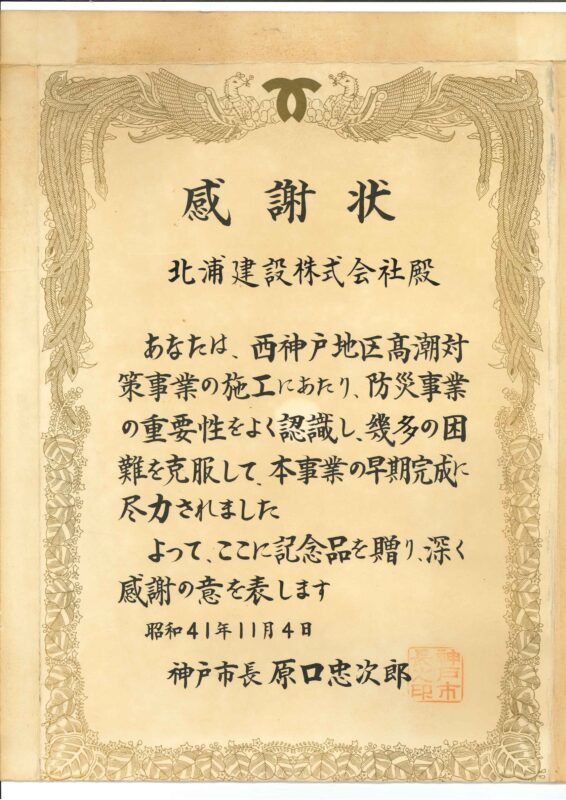 感謝状
北浦建設株式会社殿
あなたは、西神戸地区高潮対
策事業の施工にあたり、防災事業
の重要性をよく認識し、幾多の困
難を克服して、本事業の早期完成に
尽力されました
よって、ここに記念品を贈り、深く
感謝の意を表します
昭和41年11月4日
神戸市長 原口忠次郎
神戸市
長之印